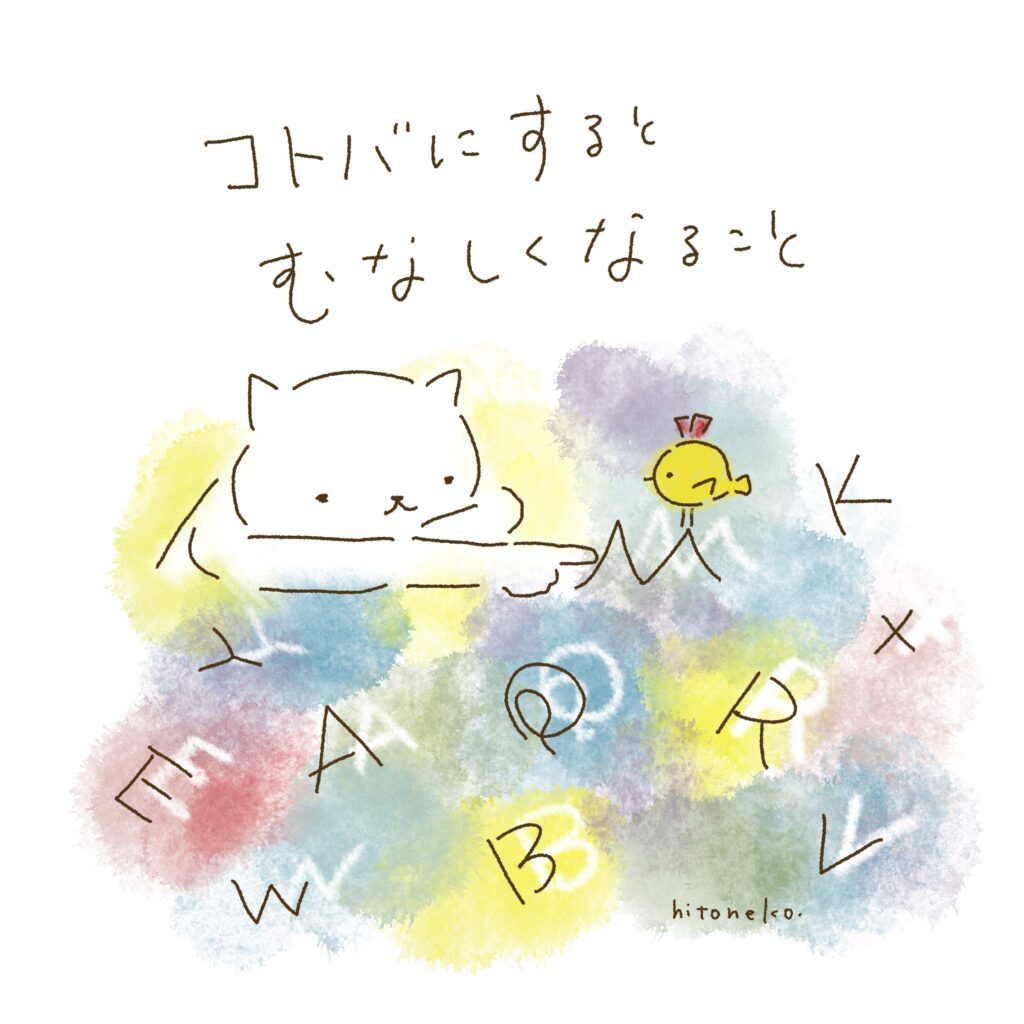 コトバにすると
むなしくなること
M
K
X
Y
A
Q
R
E
B
V
W
hitoneko.